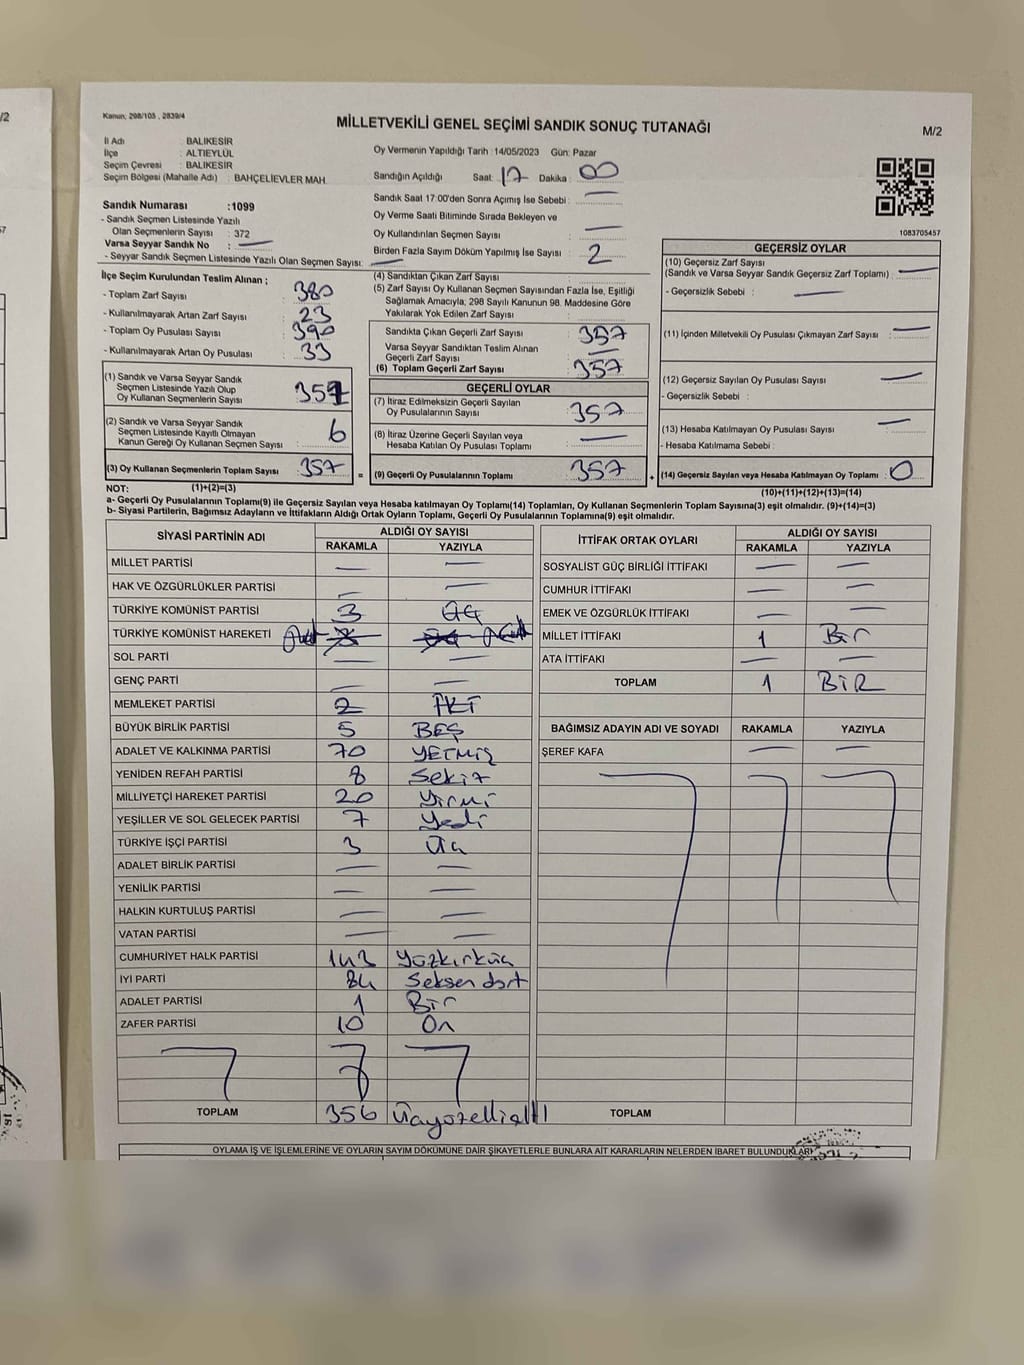 Kanun; 298/105 , 2839/4
MİLLETVEKİLİ GENEL SEÇİMİ SANDIK SONUÇ TUTANAĞI
M/2
İl Adı : BALIKESİR
İlçe : ALTIEYLÜL
Seçim Çevresi : BALIKESİR
Seçim Bölgesi (Mahalle Adı) : BAHÇELİEVLER MAH.
Oy Vermenin Yapıldığı Tarih :14/05/2023 Gün: Pazar
Sandığın Açıldığı Saat : 17 Dakika : 00
Sandık Saat 17:00'den Sonra Açımış İse Sebebi : —
Oy Verme Saati Bitiminde Sırada Bekleyen ve
Oy Kullandırılan Seçmen Sayısı : —
Birden Fazla Sayım Döküm Yapılmış İse Sayısı : 2
1083705457
Sandık Numarası :1099
- Sandık Seçmen Listesinde Yazılı
Olan Seçmenlerin Sayısı : 372
Varsa Seyyar Sandık No : —
- Seyyar Sandık Seçmen Listesinde Yazılı Olan Seçmen Sayısı: —
İlçe Seçim Kurulundan Teslim Alınan ;
- Toplam Zarf Sayısı : 380
- Kullanılmayarak Artan Zarf Sayısı : 23
- Toplam Oy Pusulası Sayısı : 390
- Kullanılmayarak Artan Oy Pusulası : 33
(1) Sandık ve Varsa Seyyar Sandık
Seçmen Listesinde Yazılı Olup
Oy Kullanan Seçmenlerin Sayısı
(2) Sandık ve Varsa Seyyar Sandık
Seçmen Listesinde Kayıtlı Olmayan
Kanun Gereği Oy Kullanan Seçmen Sayısı : 6
(3) Oy Kullanan Seçmenlerin Toplam Sayısı : 357
(4) Sandıktan Çıkan Zarf Sayısı :
(5) Zarf Sayısı Oy Kullanan Seçmen Sayısından Fazla İse, Eşitliği
Sağlamak Amacıyla, 298 Sayılı Kanunun 98. Maddesine Göre
Yakılarak Yok Edilen Zarf Sayısı :
Sandıkta Çıkan Geçerli Zarf Sayısı : 357
Varsa Seyyar Sandıktan Teslim Alınan
Geçerli Zarf Sayısı : —
(6) Toplam Geçerli Zarf Sayısı : 357
GEÇERLİ OYLAR
(7) İtiraz Edilmeksizin Geçerli Sayılan
Oy Pusulalarının Sayısı : 357
(8) İtiraz Üzerine Geçerli Sayılan veya
Hesaba Katılan Oy Pusulası Toplamı : —
= (9) Geçerli Oy Pusulalarının Toplamı : 357
GEÇERSİZ OYLAR
(10) Geçersiz Zarf Sayısı
(Sandık ve Varsa Seyyar Sandık Geçersiz Zarf Toplamı) : —
- Geçersizlik Sebebi : —
(11) İçinden Milletvekili Oy Pusulası Çıkmayan Zarf Sayısı : —
(12) Geçersiz Sayılan Oy Pusulası Sayısı : —
- Geçersizlik Sebebi :
(13) Hesaba Katılmayan Oy Pusulası Sayısı : —
- Hesaba Katılmama Sebebi :
+ (14) Geçersiz Sayılan veya Hesaba Katılmayan Oy Toplamı : 0
NOT: (1)+(2)=(3)
(10)+(11)+(12)+(13)=(14)
a- Geçerli Oy Pusulalarının Toplamı(9) ile Geçersiz Sayılan veya Hesaba katılmayan Oy Toplamı(14) Toplamları, Oy Kullanan Seçmenlerin Toplam Sayısına(3) eşit olmalıdır. (9)+(14)=(3)
b- Siyasi Partilerin, Bağımsız Adayların ve İttifakların Aldığı Ortak Oyların Toplamı, Geçerli Oy Pusulalarının Toplamına(9) eşit olmalıdır.
SİYASİ PARTİNİN ADI ALDIĞI OY SAYISI
RAKAMLA YAZIYLA
MİLLET PARTİSİ — —
HAK VE ÖZGÜRLÜKLER PARTİSİ — —
TÜRKİYE KOMÜNİST PARTİSİ 3 Üç
TÜRKİYE KOMÜNİST HAREKETİ
SOL PARTİ — —
GENÇ PARTİ — —
MEMLEKET PARTİSİ 2 İKİ
BÜYÜK BİRLİK PARTİSİ 5 BEŞ
ADALET VE KALKINMA PARTİSİ 70 YETMİŞ
YENİDEN REFAH PARTİSİ 8 Sekiz
MİLLİYETÇİ HAREKET PARTİSİ 20 Yirmi
YEŞİLLER VE SOL GELECEK PARTİSİ 7 Yedi
TÜRKİYE İŞÇİ PARTİSİ 3 Üç
ADALET BİRLİK PARTİSİ — —
YENİLİK PARTİSİ — —
HALKIN KURTULUŞ PARTİSİ — —
VATAN PARTİSİ — —
CUMHURİYET HALK PARTİSİ 143 Yüzkırküç
İYİ PARTİ 84 Seksen dört
ADALET PARTİSİ 1 Bir
ZAFER PARTİSİ 10 On
TOPLAM 356 Üçyüzellialtı
İTTİFAK ORTAK OYLARI ALDIĞI OY SAYISI
RAKAMLA YAZIYLA
SOSYALİST GÜÇ BİRLİĞİ İTTİFAKI — —
CUMHUR İTTİFAKI — —
EMEK VE ÖZGÜRLÜK İTTİFAKI — —
MİLLET İTTİFAKI 1 Bir
ATA İTTİFAKI — —
TOPLAM 1 BİR
BAĞIMSIZ ADAYIN ADI VE SOYADI RAKAMLA YAZIYLA
ŞEREF KAFA — —
TOPLAM
OYLAMA İŞ VE İŞLEMLERİNE VE OYLARIN SAYIM DÖKÜMÜNE DAİR ŞİKAYETLERLE BUNLARA AİT KARARLARIN NELERDEN İBARET BULUNDUKLARI